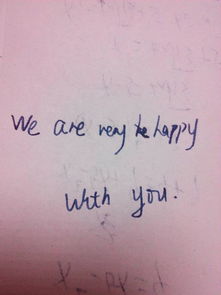 We are very be happy
with you.